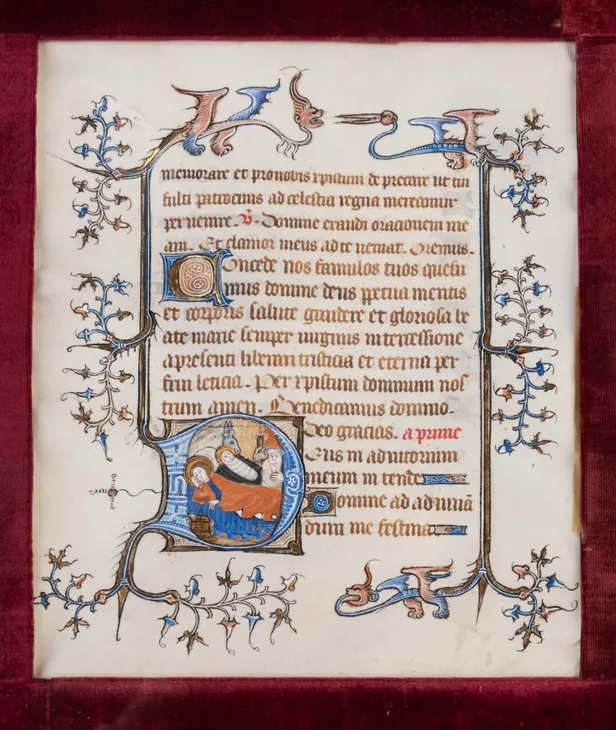 memorare et pro nobis xpistum deprecare ut tui
fulti patrocinis ad celestia regna mereamur
peruenire. V. Domine exaudi orationem me
am. Et clamor meus ad te ueniat. Oremus.
Concede nos famulos tuos quesu
mus domine deus ppetua mentis
et corporis salute gaudere et gloriosa be
ate marie semper uirginis intercessione
a presenti liberari tristicia et eterna per
frui leticia. Per xpistum dominum nos
trum amen. Benedicamus domino.
Deo gracias. a prime
Deus in adiutorium
meum intende
Domine ad adiuuā
dum me festina